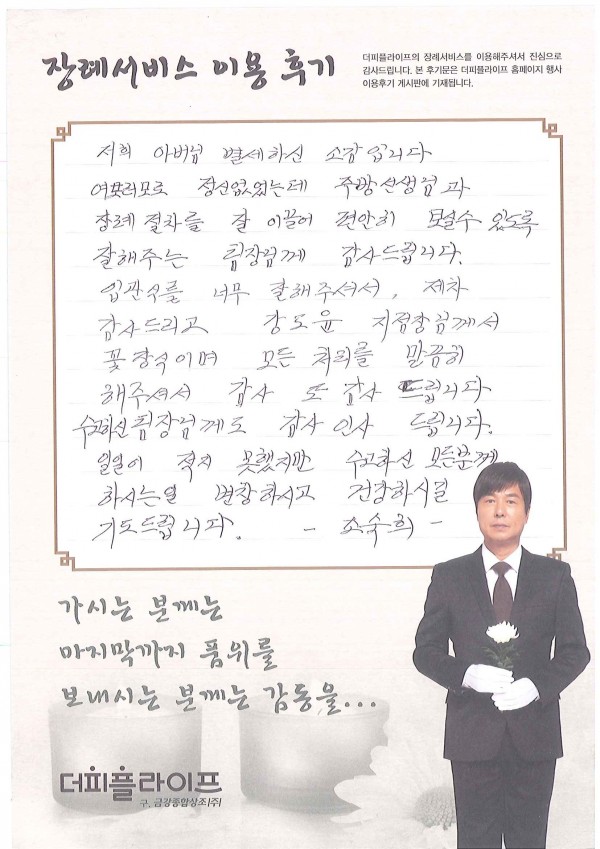 장례서비스 이용 후기
더피플라이프의 장례서비스를 이용해주셔서 진심으로
감사드립니다. 본 후기문은 더피플라이프 홈페이지 행사
이용후기 게시판에 기재됩니다.
저희 아버님 별세하신 소감입니다
정신없었는데 주방선생님과
장례 절차를 잘 이끌어 편안히 모실수 있도록
잘해주는 팀장님께 감사드립니다.
입관식를 너무 잘해주셔서, 제차
감사드리고 강도윤 지점장님께서
꽃장식이며 모든 처리를 말끔히
해주셔서 감사 또 감사 드립니다
수고하신 팀장님께도 감사 인사 드립니다.
일일이 적지 못했지만 수고하신 모든분께
하시는일 번창하시고 건강하시길
기도드립니다. - 소숙희 -
가시는 분께는
마지막까지 품위를
보내시는 분께는 감동을...
더피플라이프
구. 금강종합상조(주)